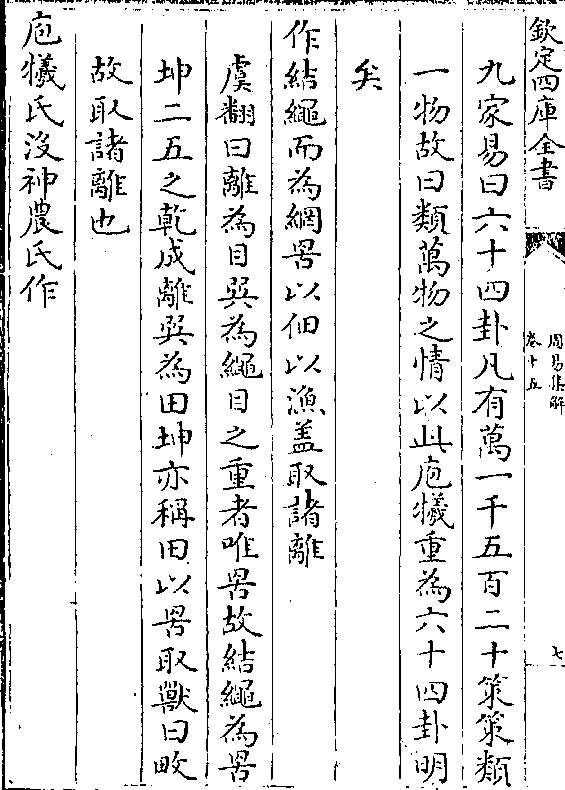 欽定四庫全書
周易集解
卷十五
七
九家易曰六十四卦凡有萬一千五百二十策策類
一物故曰類萬物之情以此庖犧重為六十四卦明
矣
作結繩而為網罟以佃以漁蓋取諸離
虞翻曰離為目巽為繩目之重者唯罟故結繩為罟
坤二五之乾成離巽為田坤亦稱田以罟取獸曰畋
故取諸離也
庖犧氏沒神農氏作